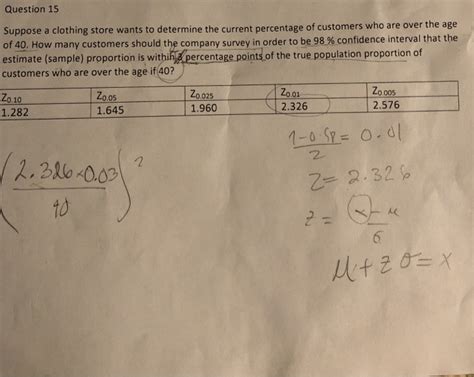 Question 15
Suppose a clothing store wants to determine the current percentage of customers who are over the age
of 40. How many customers should the company survey in order to be 98 % confidence interval that the
estimate (sample) proportion is within percentage points of the true population proportion of
customers who are over the age if 40?
Z0.10 Z0.05 Z0.025 Z0.01 Z0.005
1.282 1.645 1.960 2.326 2.576
(2.326×0.03 / 40)²
1-0.98 / 2 = 0.01
Z = 2.326
z = x - μ / σ
μ + z σ = x